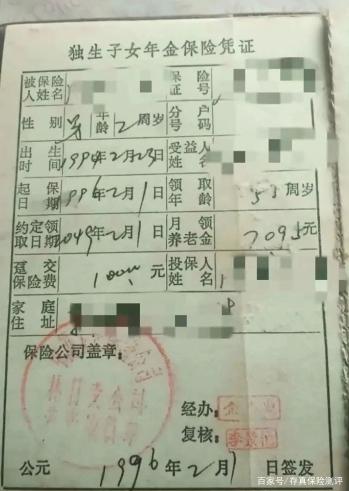 独生子女年金保险凭证
被保险人姓名 保险证号
性别 男 年龄 2周岁 分户号码
出生时间 1994年2月23日 受益人姓名
起保日期 1996年2月1日 领取年龄 55周岁
约定领取日期 2049年2月1日 月领养老金 7095元
趸交保险费 1000 元 投保人姓名
家庭住址
保险公司盖章：
经办：
复核：
公元 1996年2月1日签发
百家号/存真保险测评